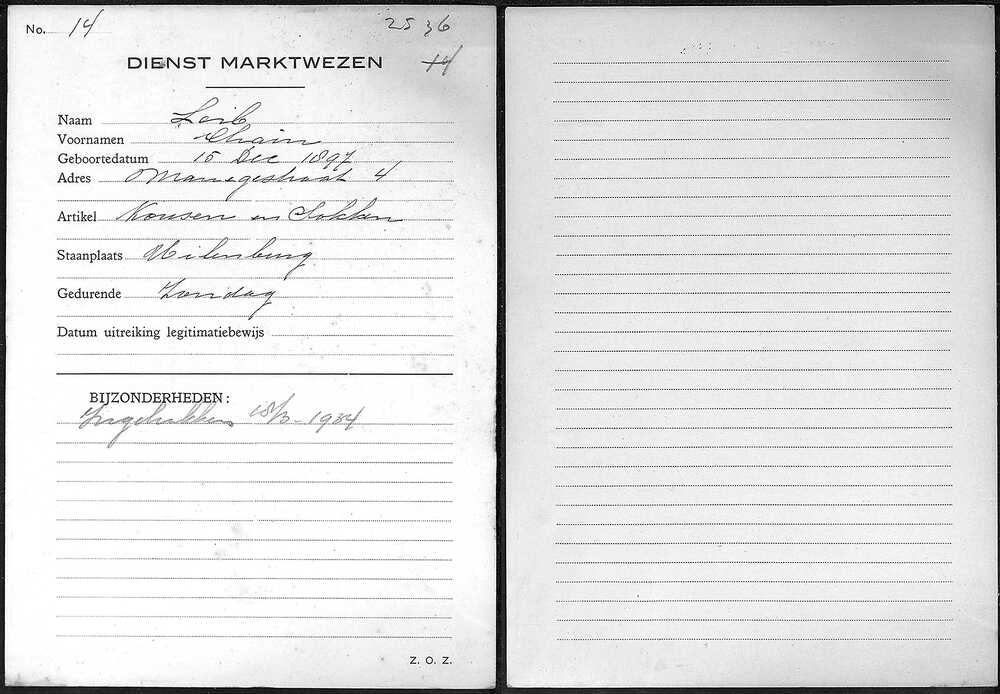 No. 14 2536
DIENST MARKTWEZEN 14
Naam Leib
Voornamen Chaim
Geboortedatum 15 Dec 1897
Adres Manegestraat 4
Artikel Kousen en Sokken
Staanplaats Uilenburg
Gedurende Zondag
Datum uitreiking legitimatiebewijs
BIJZONDERHEDEN:
Ingetrokken 15/3-1934
Z. O. Z.